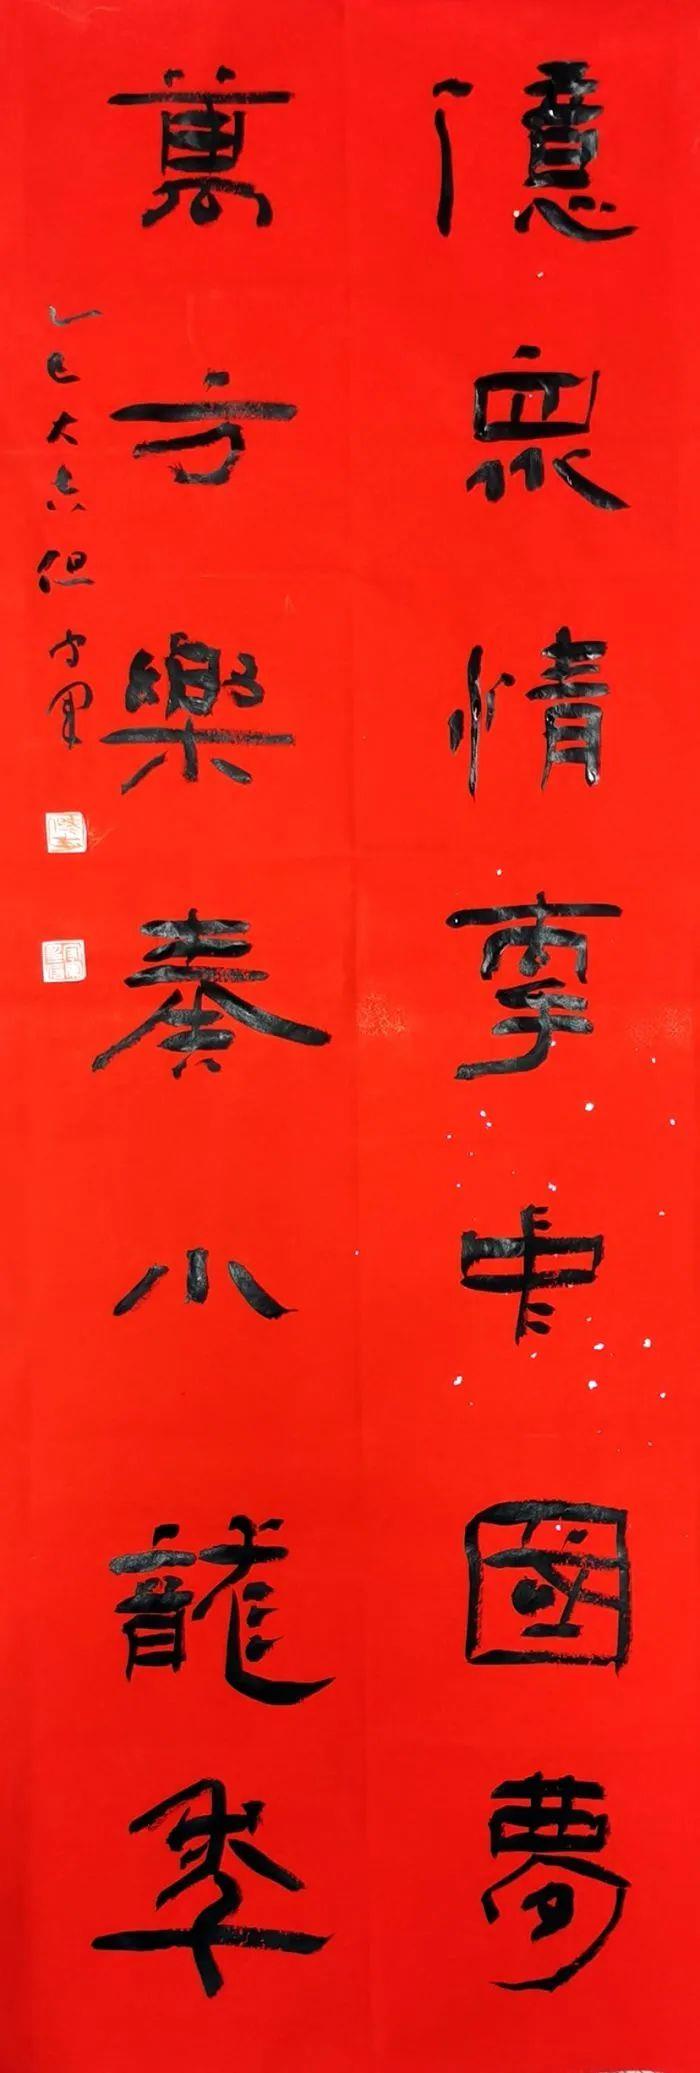 億眾情牽中國夢
萬方樂奏小龍年
乙巳大吉但